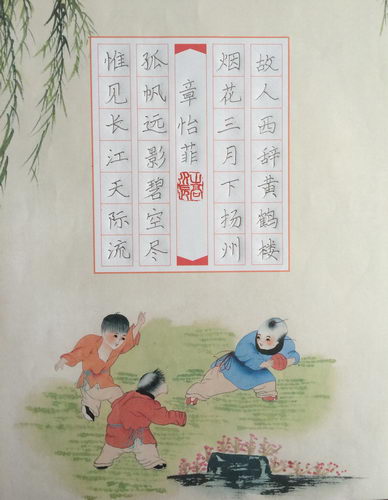 故人西辞黄鹤楼
烟花三月下扬州
章怡菲
孤帆远影碧空尽
惟见长江天际流